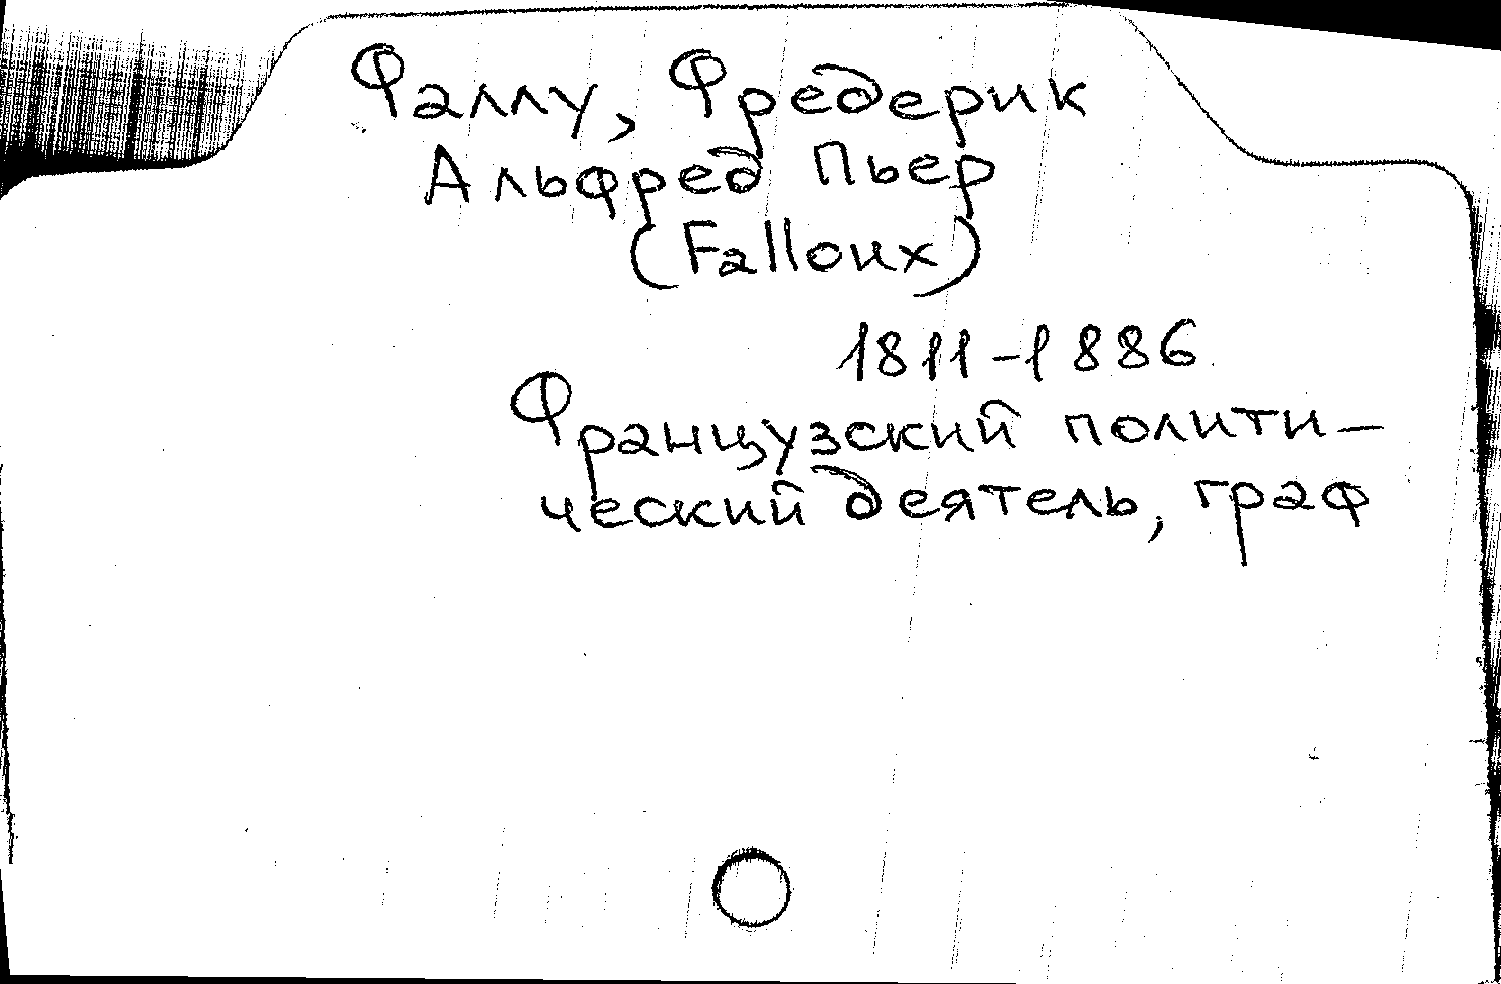 Фаллу, Фредерик
Альфред Пьер
(Falloux)
1811-1886
Французский полити-
ческий деятель, граф